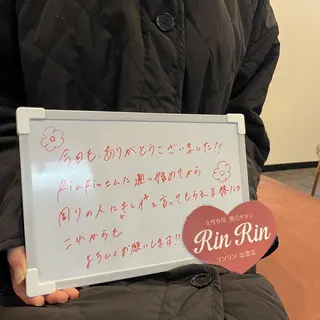 今日も、ありがとうございました!!
RinRinさんに通い始めてから
周りの人にキレイと言ってもらえる様に
これからも
よろしくお願いします!!
女性専用 脱毛サロン
Rin Rin
リンリン 出雲店